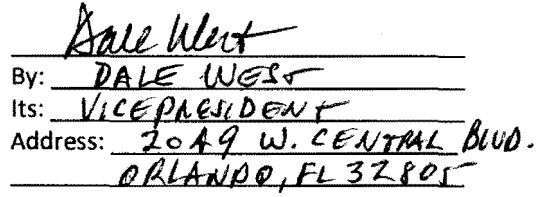 Dale West
By: DALE WEST
Its: VICEPRESIDENT
Address: 2049 W. CENTRAL BLVD.
ORLANDO, FL 32805